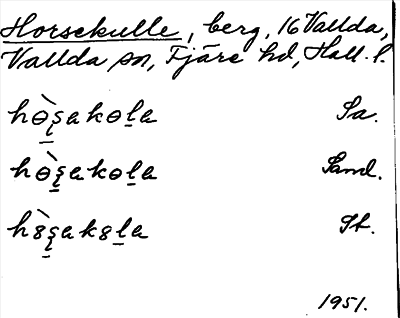 Horsekulle, berg, 16 Vallda,
Vallda sn, Fjäre hd, Hall. l.
hɵ̀ʂakɵl̠a Sa.
hɵ̀ʂakɵl̠a Sand.
h8̀ʂak8l̠a St.
1951.